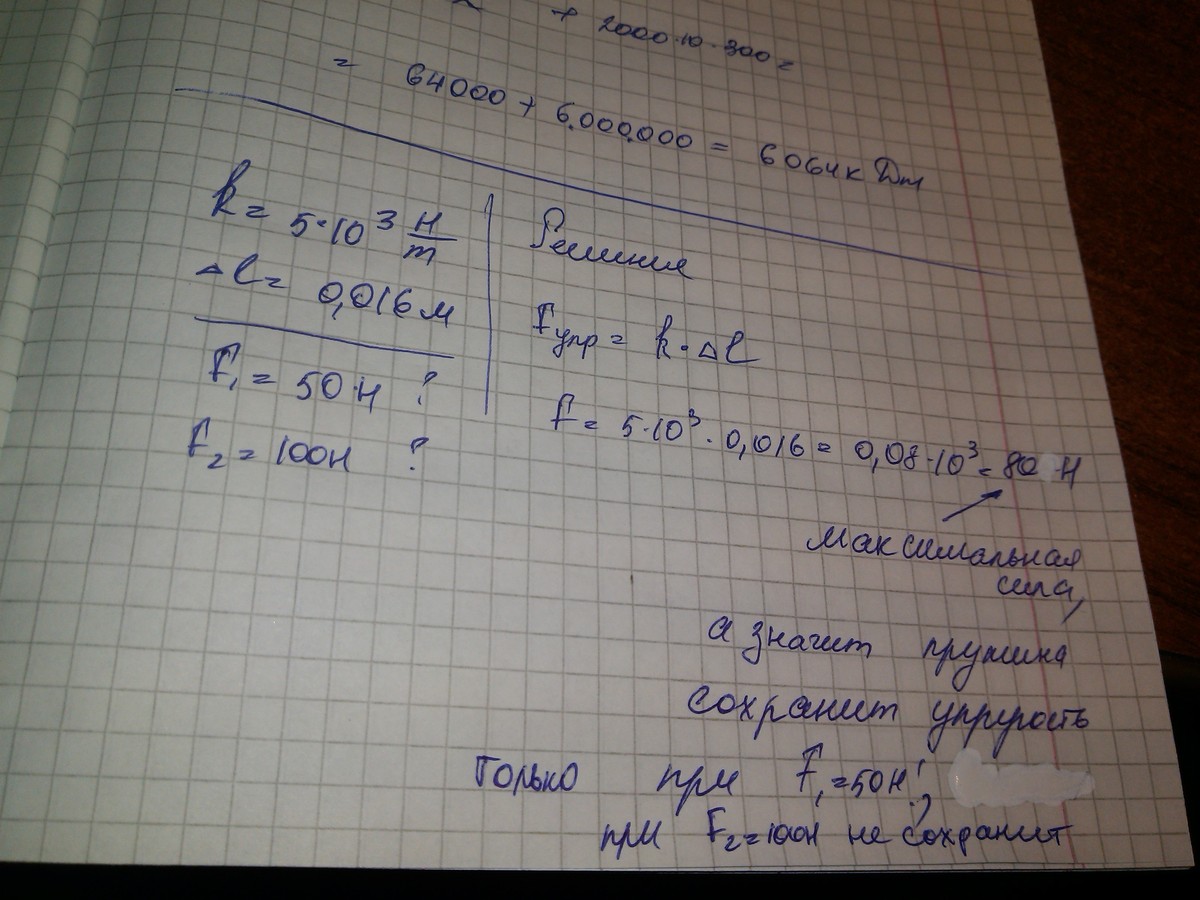 + 2000·10·300=
= 64000 + 6.000.000 = 6064кДж
k = 5·10³ Н/m
Δl = 0,016м
F₁ = 50Н ?
F₂ = 100Н ?
Решиния
Fупр = k·Δl
F = 5·10³·0,016 = 0,08·10³ = 80 Н
максимальная
сила,
а значит пружина
сохранит упругость
Только при F₁=50Н!
при F₂=100Н не сохранит